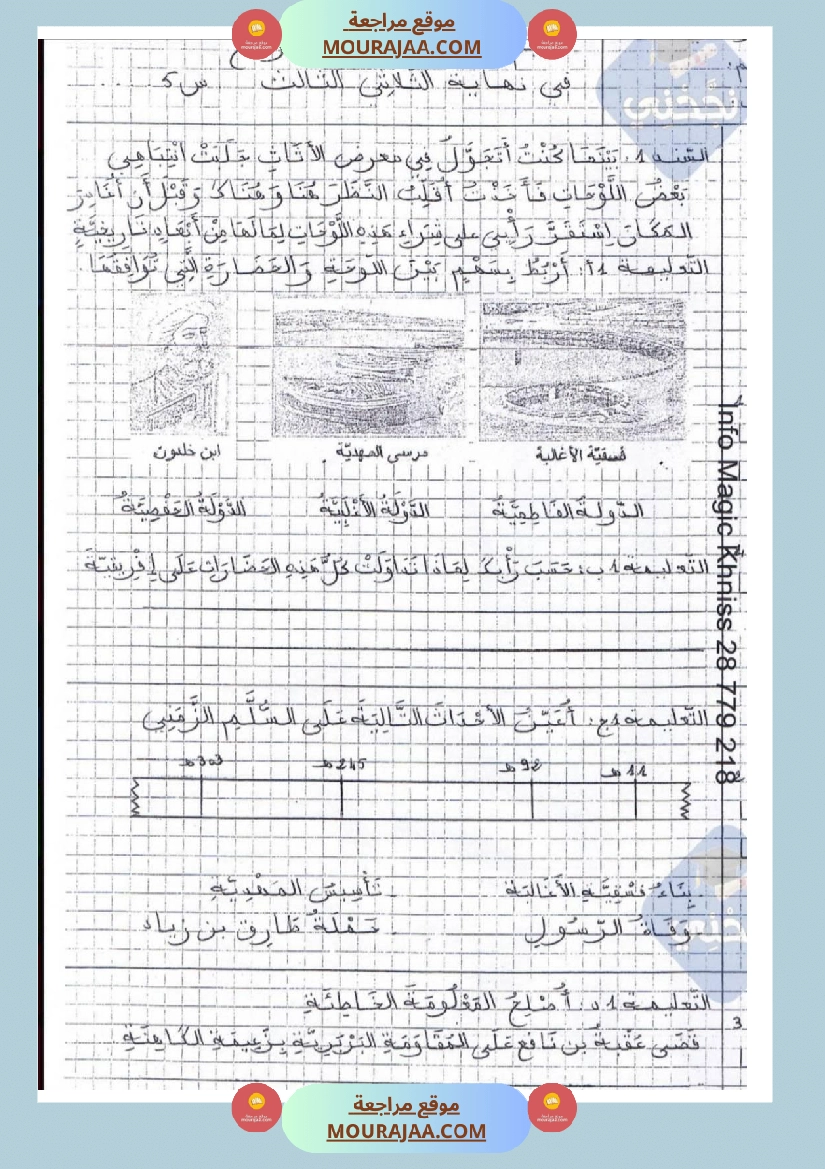 موقع مراجعة
MOURAJAA.COM
في نهاية الثّلاثي الثّالث س5
نجّحني
السّند 1: بَيْنَمَا كُنْتُ أَتَجَوَّلُ فِي معرض الأثَاثِ جَلَبَتْ انْتِبَاهِي
بَعْضُ اللَّوْحَاتِ فَأَخَذْتُ أُقَلِّبُ النَّظَرَ هُنَا وَهُنَاكَ وَقَبْلَ أَن أُغَادِرَ
المَكَانَ اِسْتَقَرَّ رَأْيِي على شِرَاءِ هَذِهِ اللَّوْحَاتِ لِمَا لَهَا مِنْ أَبْعَادٍ تَارِيخِيَّةٍ
التّعليمة 1أ: أَرْبُطُ بِسَهْمٍ بَيْنَ اللّوحَةِ وَالحَضَارَةِ الَّتِي تُوَافِقُهَا.
فسقيّة الأغالبة
مرسى المهديّة
ابن خلدون
الدّولةُ الفَاطِمِيَّةُ
الدَّوْلَةُ الأَغْلَبِيَّةُ
الدَّوْلَةُ الحَفْصِيَّةُ
التّعليمة 1ب: حَسَبَ رَأْيِكَ لِمَاذَا تَدَاوَلَتْ كُلُّ هَذِهِ الحَضَارَاتِ عَلَى إِفْرِيقِيَّةَ
التّعليمة 1ج: أُعَيِّنُ الأَحْدَاثَ التَّالِيَةَ عَلَى السُّلَّمِ الزَّمَنِي
11هـ
92هـ
245هـ
303هـ
- بِنَاءُ فَسْقِيَّةِ الأَغَالِبَة
- تَأْسِيسُ المَهْدِيَّةِ
- وَفَاةُ الرّسُولِ
- حَمْلَةُ طَارِق بن زياد
التّعليمة 1د: أُصْلِحُ المَعْلُومَةَ الخَاطِئَةَ
قَضَى عُقْبَةُ بن نَافِع عَلَى المُقَاوَمَةِ البَرْبَرِيَّةِ بِزَعِيمَةِ الكَاهِنَةِ
3
Info Magic Khniss 28 779 218
موقع مراجعة
MOURAJAA.COM